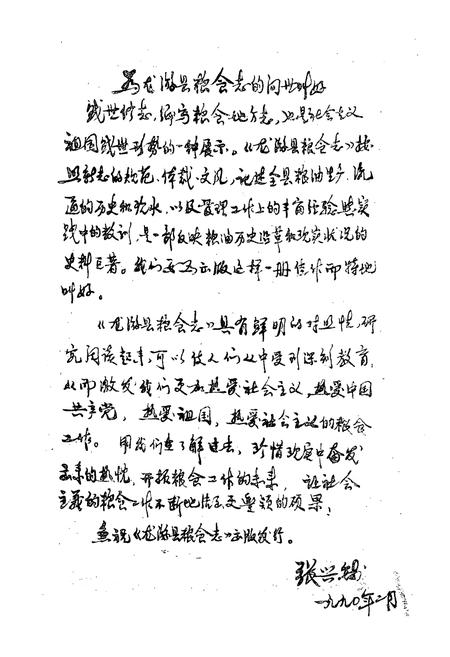 为龙游县粮食志的问世叫好
盛世修志，编写粮食地方志，也是社会主义
祖国盛世形势的一种展示。《龙游县粮食志》按
照新志的规范、体裁、文风，记述全县粮油生产、流
通的历史和现状，以及管理工作上的丰富经验与实
践中的教训，是一部反映粮油历史沿革和现实状况的
史料巨著。我们要为出版这样一册佳作而特地
叫好。
《龙游县粮食志》具有鲜明的专业性，研
究阅读起来，可以使人们从中受到深刻教育，
从而激发我们更加热爱社会主义，热爱中国
共产党，热爱祖国，热爱社会主义的粮食
工作。用我们在了解过去，珍惜现实中奋发
的热忱，开拓粮食工作的未来，让社会
主义的粮食工作不断地结出更丰硕的硕果。
《龙游县粮食志》出版发行。
张兴
一九九〇年二月